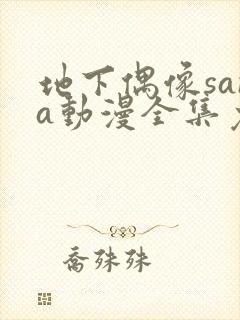 地下偶像sa
a動漫全集
喬殊殊